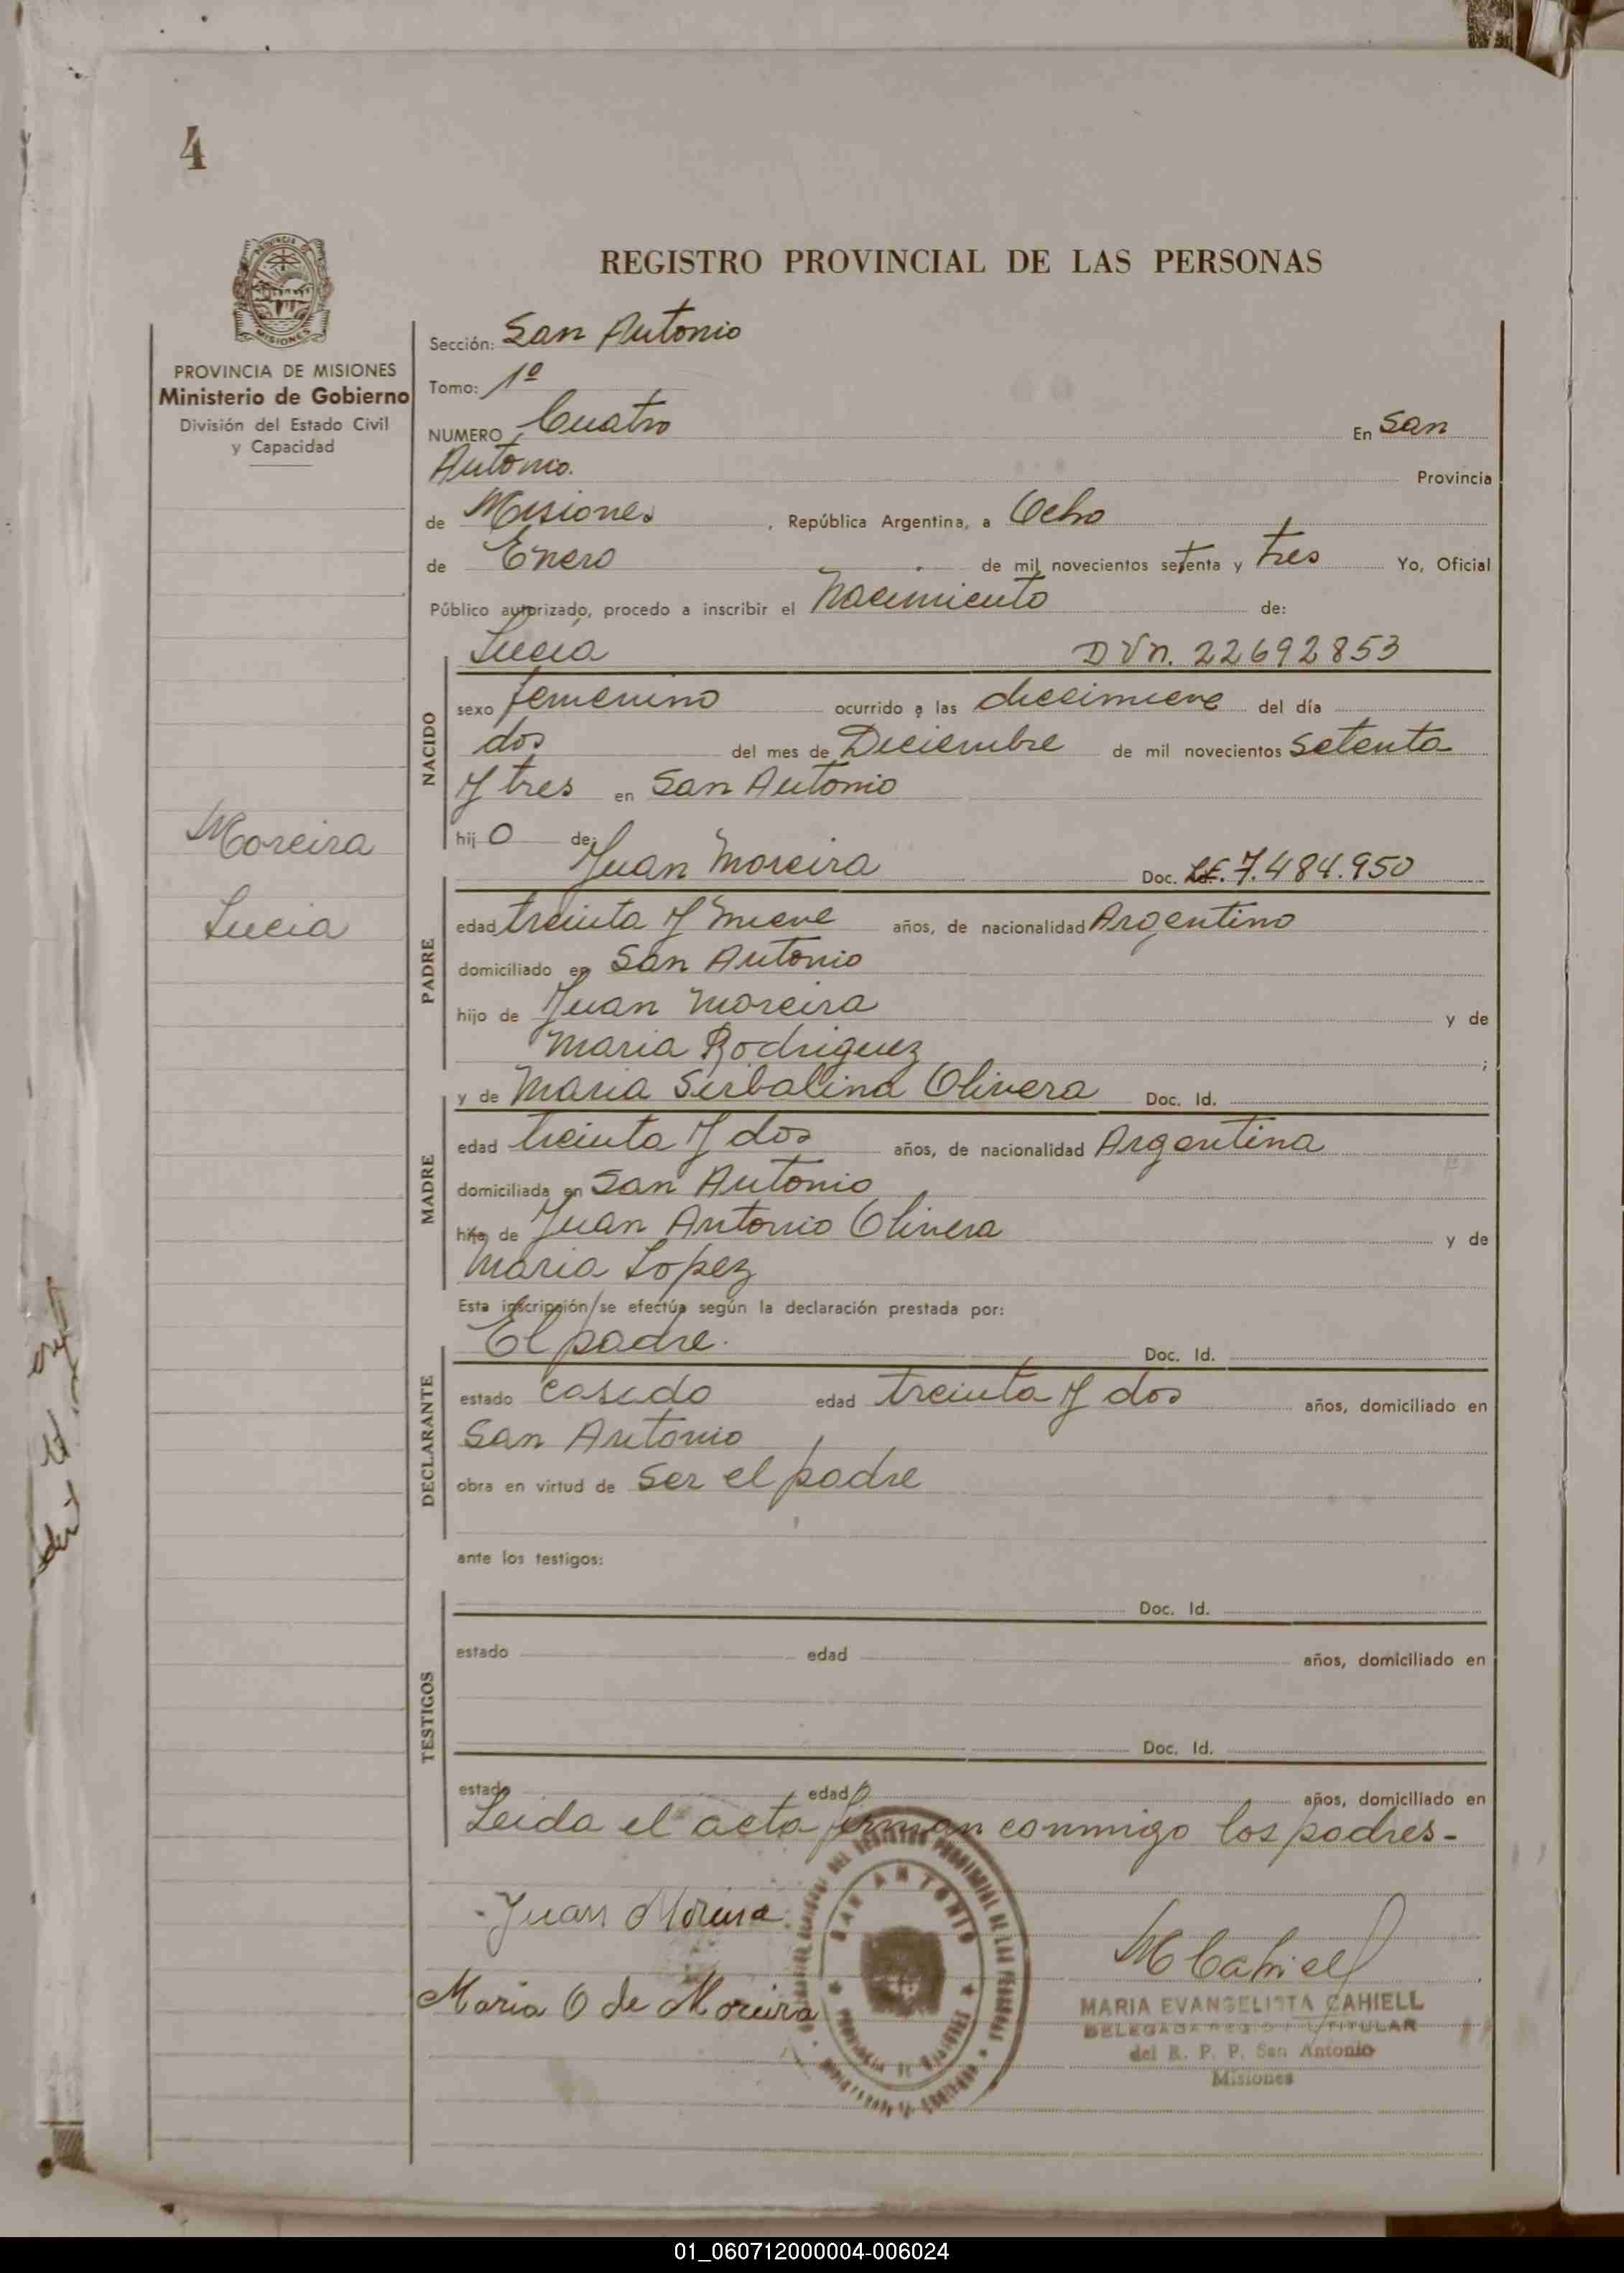 4
REGISTRO PROVINCIAL DE LAS PERSONAS
PROVINCIA DE MISIONES
Ministerio de Gobierno
División del Estado Civil
y Capacidad
Moreira
Lucia
Sección: San Antonio
Tomo: 1º
NUMERO Cuatro En San
Antonio. Provincia
de Misiones, República Argentina, a Ocho
de Enero de mil novecientos setenta y tres Yo, Oficial
Público autorizado, procedo a inscribir el Nacimiento de:
NACIDO
Lucia DVn. 22692853
sexo femenino ocurrido a las diecinueve del día
dos del mes de Diciembre de mil novecientos setenta
y tres en San Antonio
hij o de:
PADRE
Juan Moreira Doc. 7.484.950
edad treinta y nueve años, de nacionalidad Argentino
domiciliado en San Antonio
hijo de Juan Moreira y de
Maria Rodriguez ;
MADRE
y de Maria Serbalina Olivera Doc. Id.
edad treinta y dos años, de nacionalidad Argentina
domiciliada en San Antonio
hija de Juan Antonio Olivera y de
Maria Lopez
Esta inscripción se efectúa según la declaración prestada por:
DECLARANTE
El padre. Doc. Id.
estado casado edad treinta y dos años, domiciliado en
San Antonio
obra en virtud de ser el padre
ante los testigos:
TESTIGOS
Doc. Id.
estado edad años, domiciliado en
Doc. Id.
estado edad años, domiciliado en
Leida el acta firman conmigo los padres-
Juan Moreira
Maria O de Moreira
SAN ANTONIO
MCahiell
MARIA EVANGELISTA CAHIELL
DELEGADA TITULAR
del R. P. P. San Antonio
Misiones
01_060712000004-006024